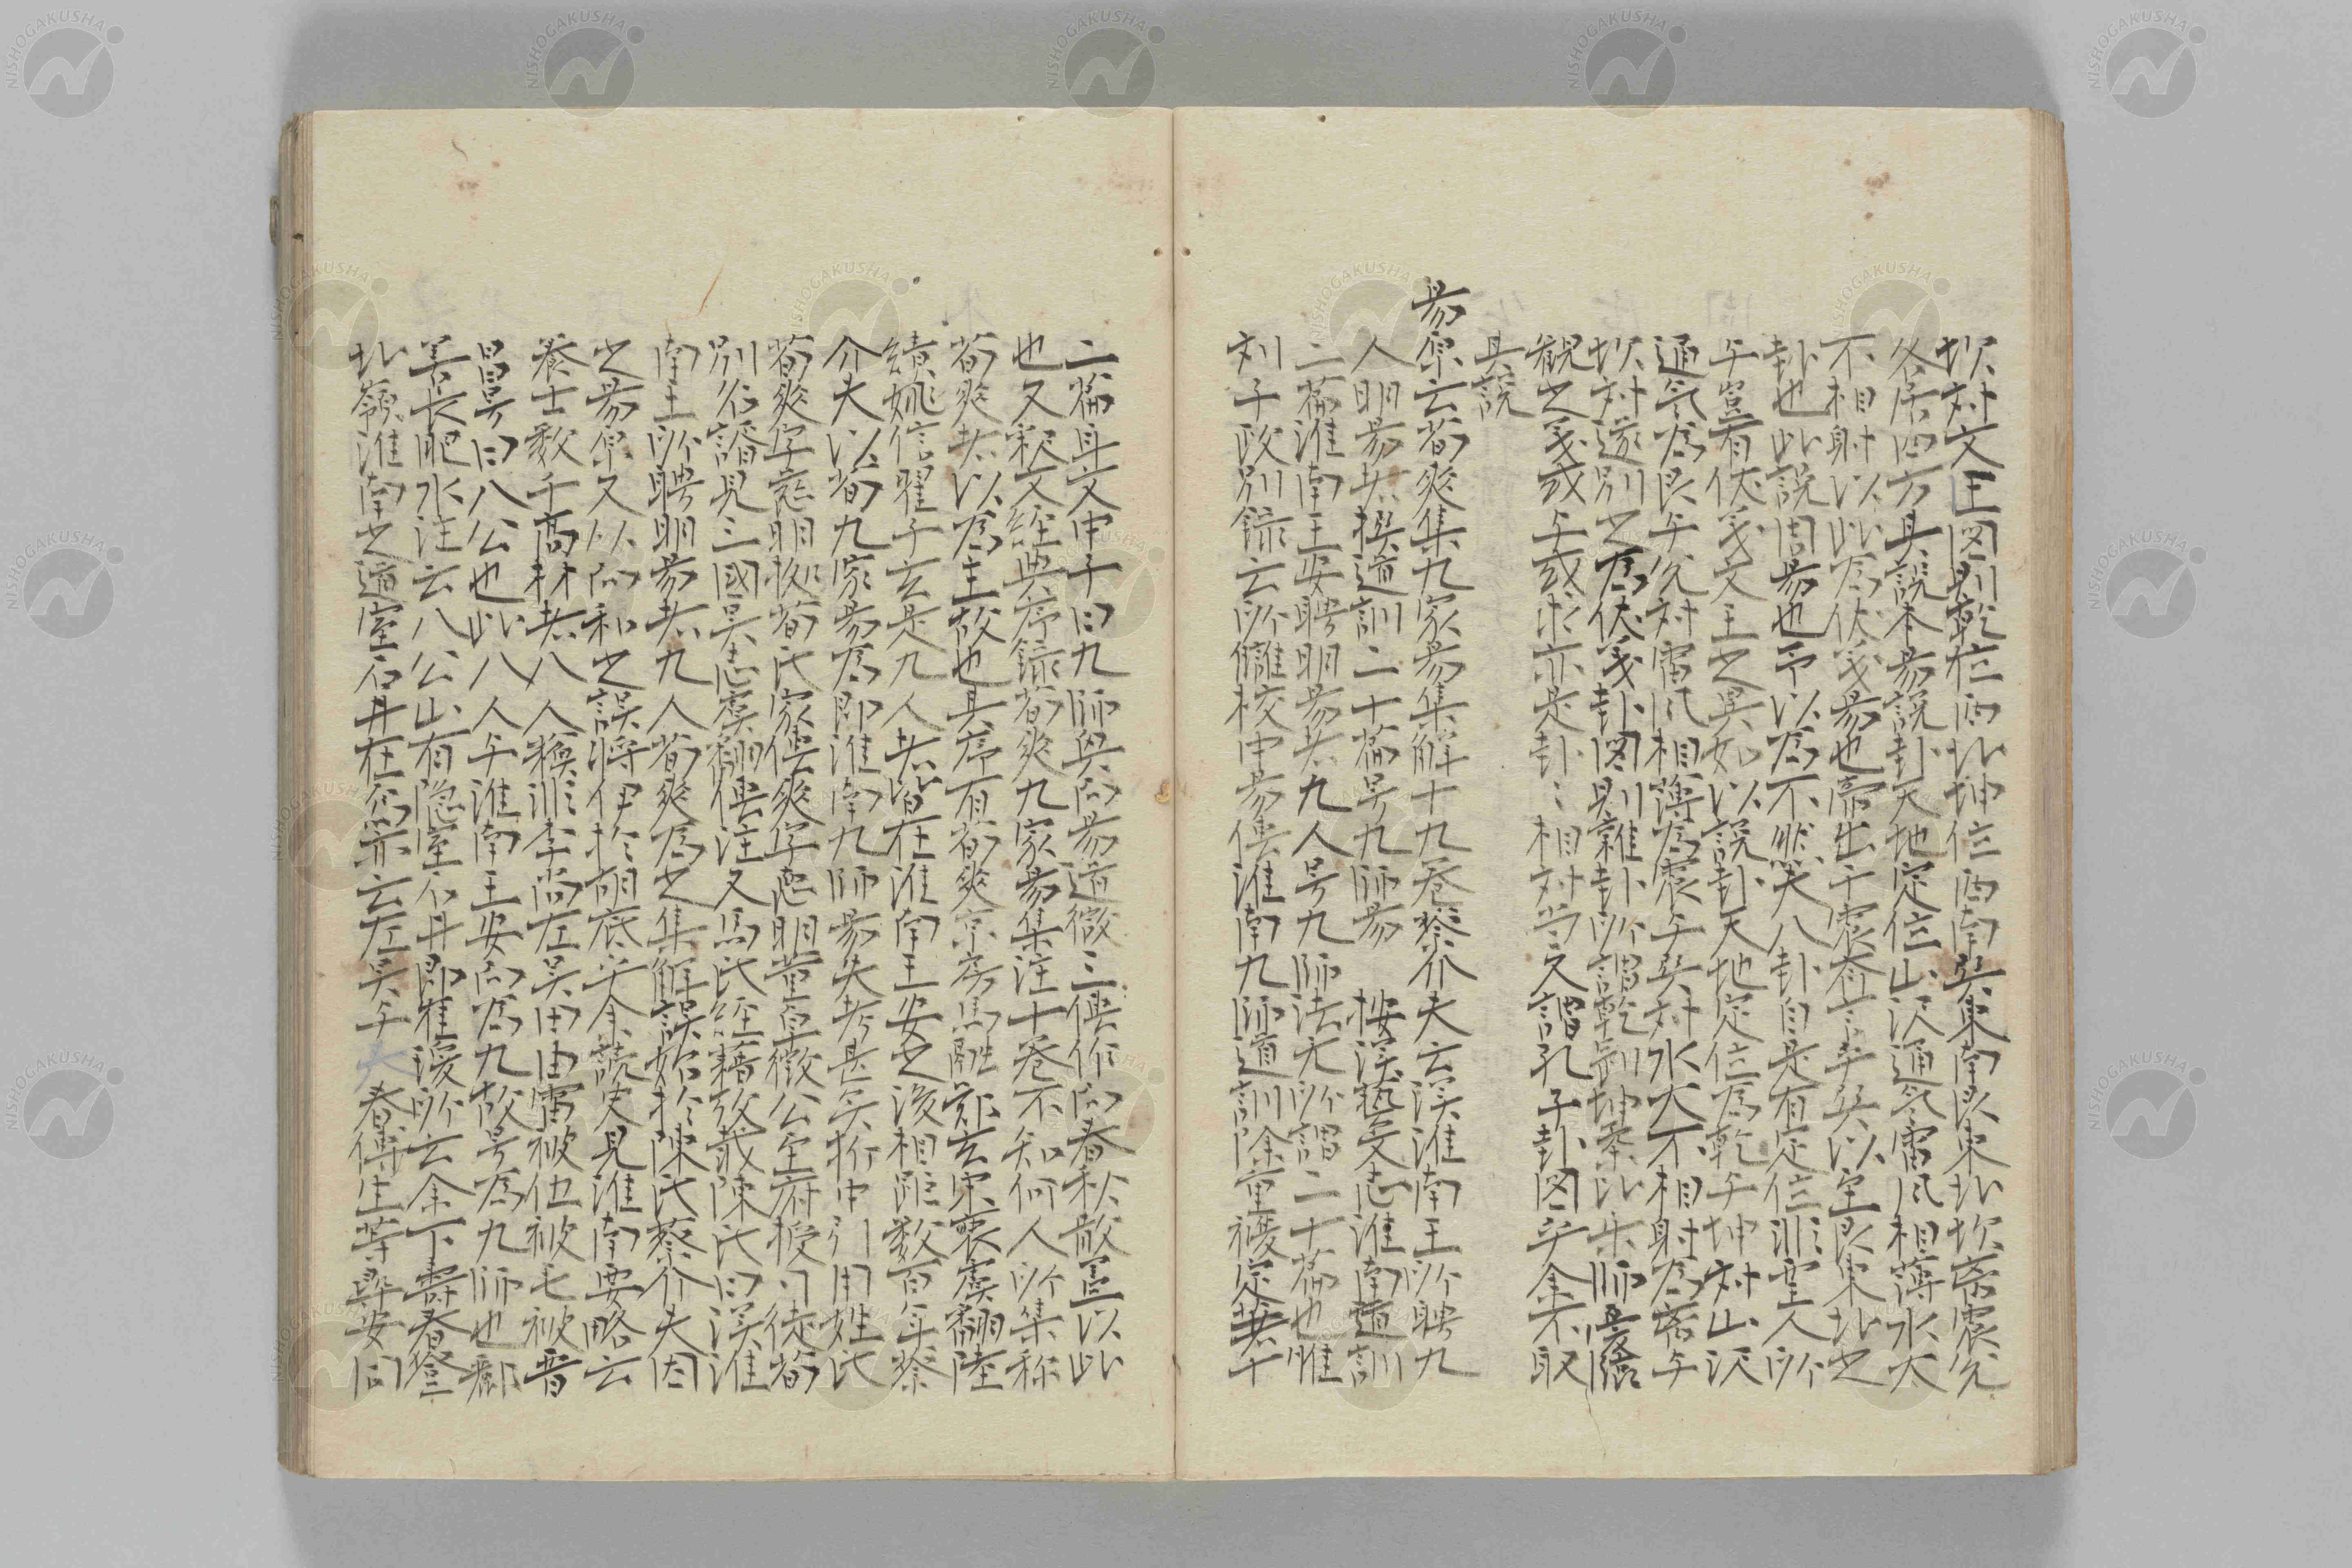 坎対文王図則乾位西北坤位西南巽東南艮東北坎离震兊
各居四方其說本易說卦天地定位山沢通气雷風相薄水火
不相射以此為伏羲易也帝出于震斉言乎巽以至艮東北之
卦也此說周易也予以為不然夫八卦自是有定位非聖人所
乍豈有伏羲文王之異如以說卦天地定位為乾与坤対山沢
通气為艮与兊対雷風相薄為震与巽対水火不相射為离与
坎対遂別之為伏羲卦図則雜卦所謂乾剛坤柔比楽師憂臨
観之義或与或求亦是卦〻相対当又謂孔子卦図乎余不取
其說
易原云荀爽集九家易集解十九卷蔡介夫云漢淮南王所聘九
人明易者撰道訓二十篇号九師易　按漢藝文志淮南道訓
二篇淮南王安聘明易者九人号九師法尢所謂二十篇也惟
刘子政別録云所讎校中易傳淮南九師道訓除重複定著十
二篇耳文中子曰九師興而易道微三傳作而春秋散盖以此
也又釈文經典序録荀爽九家易集注十卷不知何人所集称
荀爽者以為主故也其序有荀爽京房馬融鄭玄宋衷虞翻陸
績姚信翟子玄是九人者皆在淮南王安之後相距数百年蔡
介夫以荀九家易為即淮南九師易失考甚矣衍中引用姓氏
荀爽字慈明拠荀氏家傳爽字慈明董卓徵公至府授司徒荀
別名諝見三國吳志虞翻傳注又馬氏經籍攷載陳氏曰漢淮
南王所聘明易者九人荀爽為之集解誤始於陳氏蔡介夫因
之易原又从而和之誤将伊於胡底乎余読史見淮南要略云
養士数千高材者八人蘇非李尚左吳田由雷被伍被毛被晋
昌号曰八公也此八人与淮南王安而為九故号為九師也酈
善長肥水注云八公山有隐室石井即崔琰所云余下壽春登
北嶺淮南之道室石井在焉亦云左吳与 春傅生等尋安同